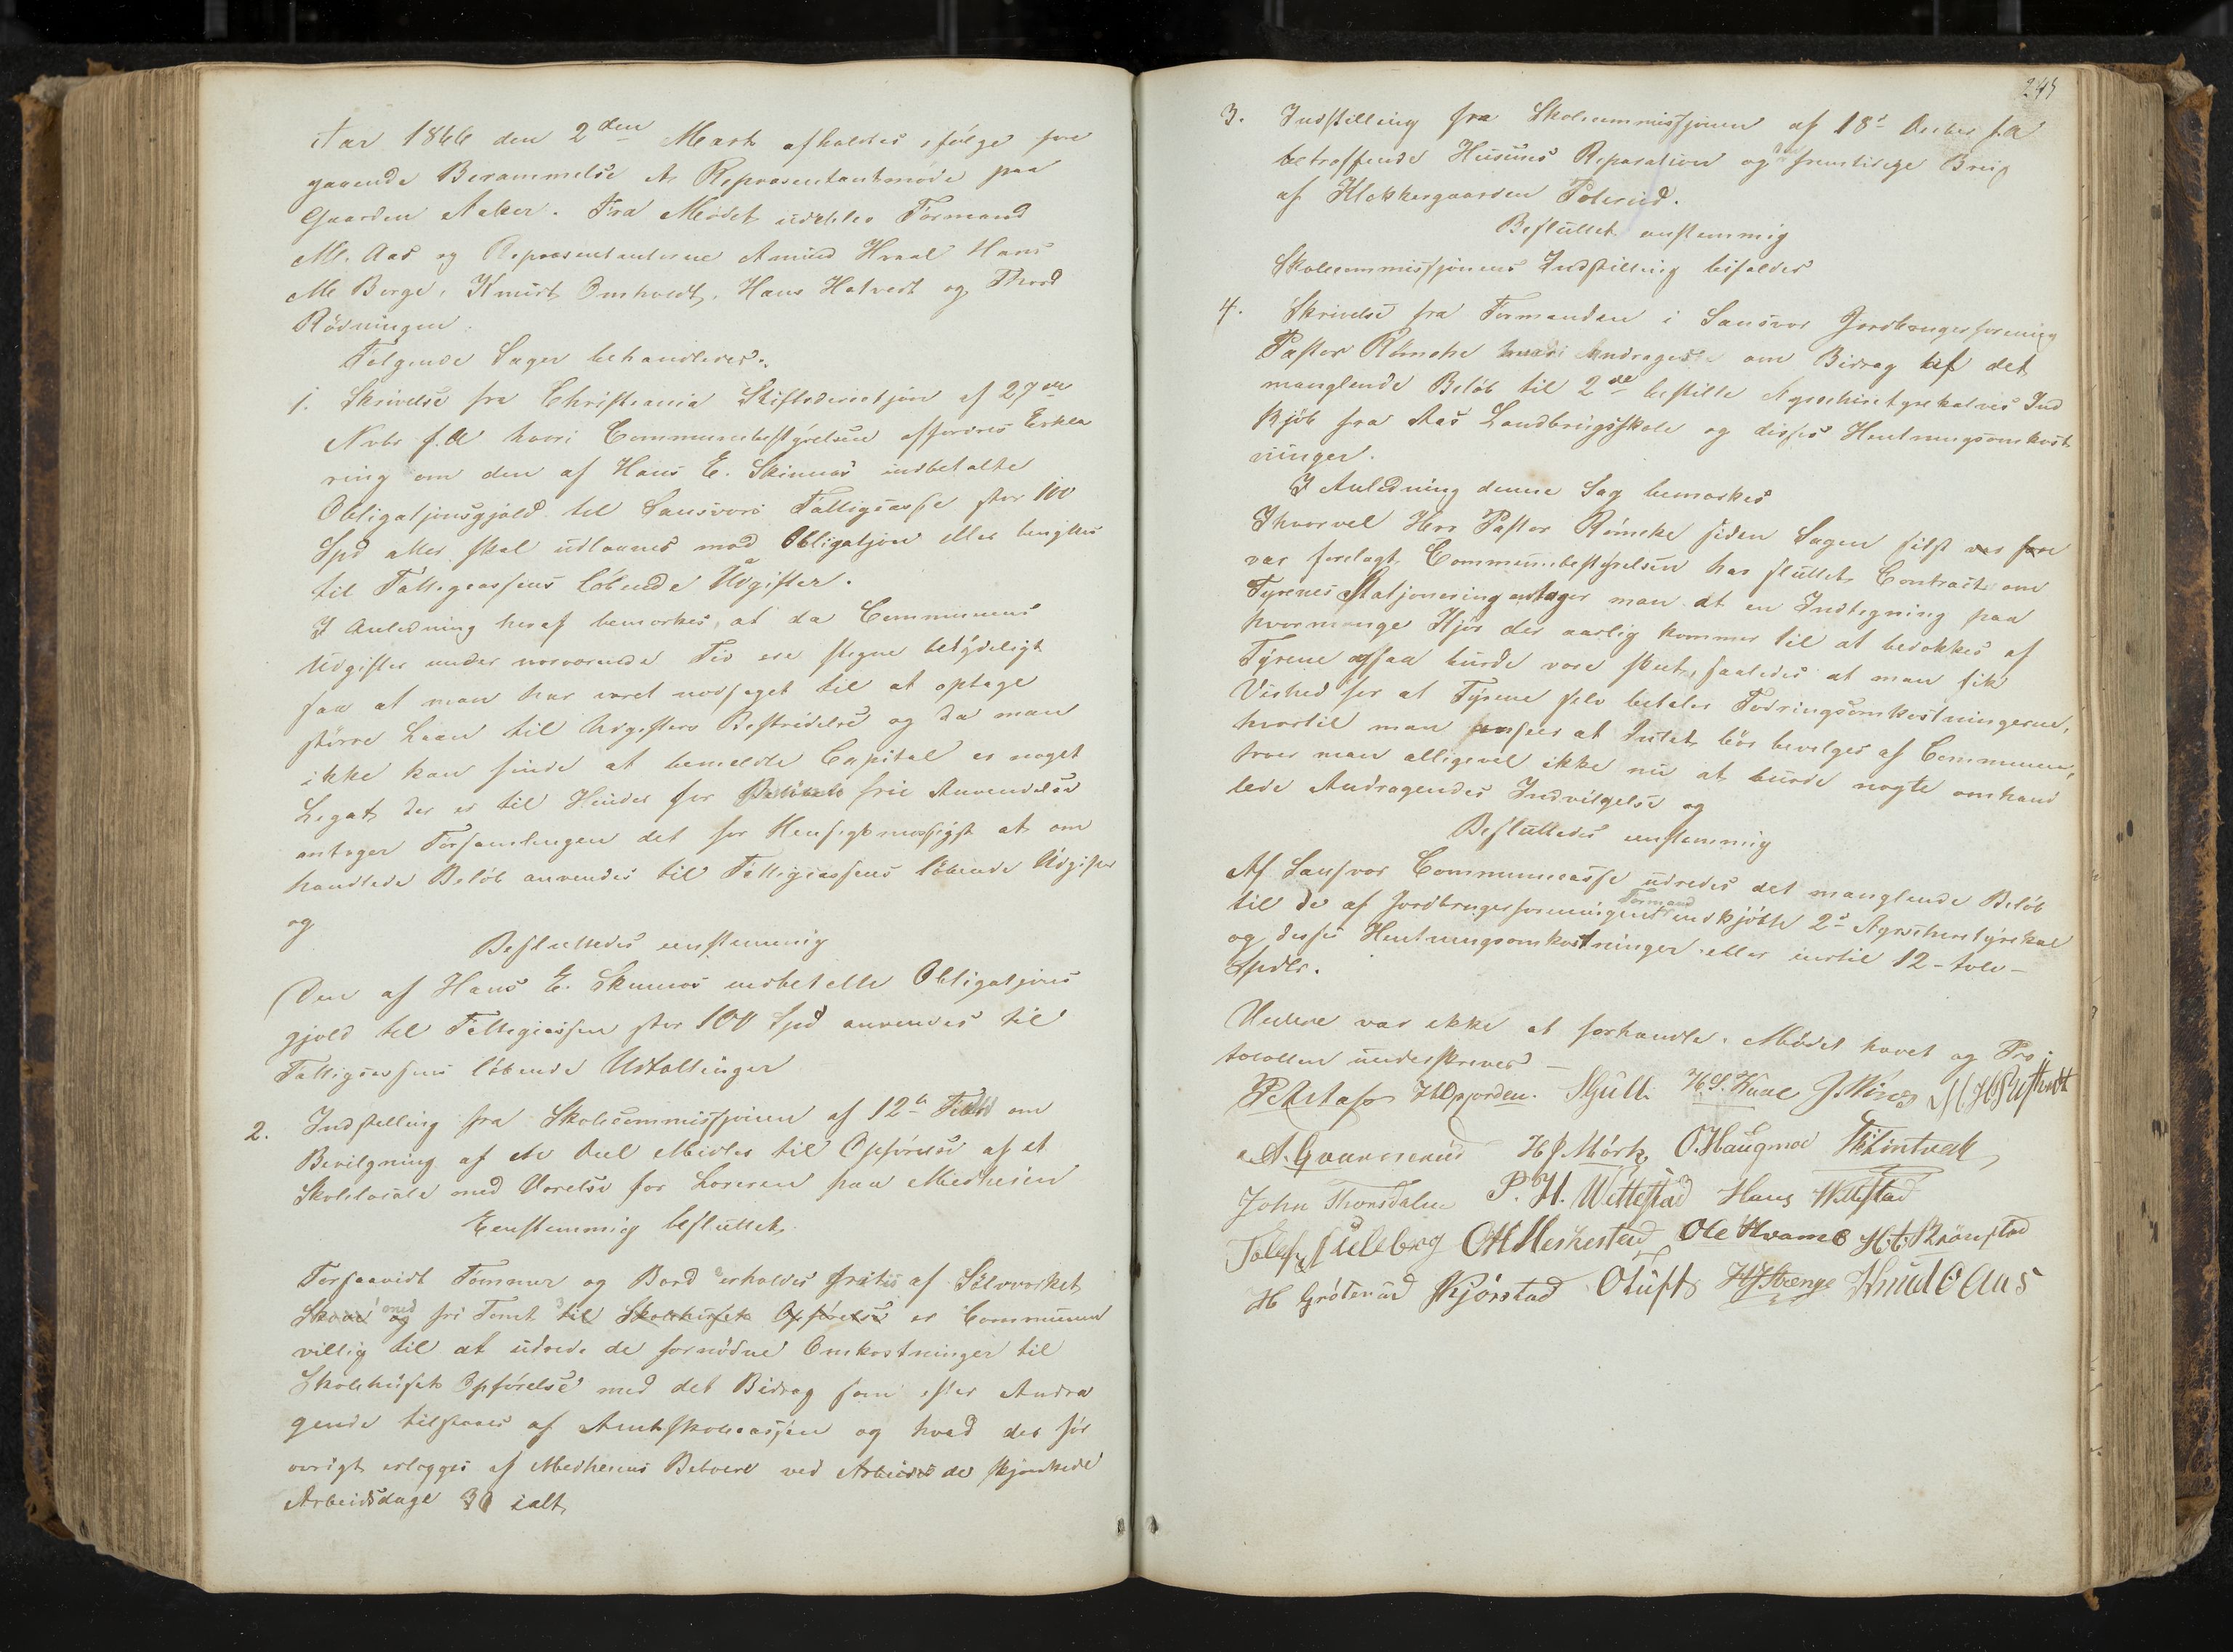 Aar 1866 den 2den Marts afholdtes ifølge fore
gaaende Berammelse et Repræsentantmøde paa
Gaarden Aaker. Fra Mødet udebleve Formand
M. Aas og Repræsentanterne Amund Kraal Hans
M Borge, Knudt Omholdt, Hans Hatvedt og Thord
Rødningen.
Følgende Sager behandledes:
1. Skrivelse fra Christiania Stiftsdirectjon af 27de
Novbr f.A. hvori Communebestyrelsen affordres Erklæ
ring om den af Hans E. Skinnæs indbetalte
Obligatjonsgjæld til Sansværs Fattigcasse stor 100
Spd atter skal udlaanes mod Obligatjon eller benyttes
til Fattigcassens løbende Udgifter.
I Anledning heraf bemærkes, at da Communens
Udgifter under nærværende Tid ere stegne betydeligt
saa at man har været nødsaget til at optage
større Laan til Udgifters Bestridelse og da man
ikke kan finde at bemeldte Capital er noget
Legat der er til Hinder for fri Anvendelse
antager Forsamlingen det for Hensigtsmæssigst at om
handlede Beløb anvendes til Fattigcassens løbende Udgifter
og
Besluttedes enstemmig
Den af Hans E. Skinnæs indbetalte Obligatjons
gjæld til Fattigcassen stor 100 Spd anvendes til
Fattigcassens løbende Udtællinger
2. Indstilling fra Skolecommissjonen af 12te Febr om
Bevilgning af en Deel Midler til Opførelse af et
Skolelocale med Værelse for Læreren paa Medheien
Eenstemmig besluttet
Forsaavidt Tømmer og Bord erholdes fritt af Sølvværkets
Skove med og fri Tomt til Skolehusets Opførelse er Communen
villig til at udrede de fornødne Omkostninger til
Skolehusets Opførelse med det Bidrag som efter Andra
gende tilstaaes af Amtsskolecassen og hvad der for
øvrigt erlægges af Medheiens Beboere ved Arbeide de skjænkede
Arbeidsdage 30 ialt
245
3. Indstilling fra Skolecommissjonen af 18de Decbr f.A
betræffende Husenes Reparation og den fremtidige Brug
af Klokkergaarden Tolerud.
Besluttet enstemmig
Skolecommissjonens Indstilling bifaldes
4. Skrivelse fra Formanden i Sansvær Jordbrugerforening
Pastor Rømcke hvori andrages om Bidrag af det
manglende Beløb til 2de bestilte Ayrschiretyrekalves Ind
kjøb fra Aas Landbrugsskole og disses Hentningsomkost
ninger.
I Anledning denne Sag bemærkes
Ihvorvel Herr Pastor Rømcke siden Sagen sidst var fore
var forelagt Communebestyrelsen har sluttet Contract om
Tyrenes Statjonering antager man at en Indtegning paa
hvormange Kjør der aarlig kommer til at bedækkes af
Tyrene ogsaa burde være skeet, saaledes at man fik
Vished for at Tyrene selv betaler Fodringsomkostningerne,
hvortil man anseer at Intet bør bevilges af Communen,
troer man alligevel ikke nu at burde nægte omhand
lede Andragendes Indvilgelse og
Besluttedes enstemmig
Af Sansvær Communecasse udredes det manglende Beløb
til de af Jordbrugerforeningens Formand indkjøbte 2de Ayrschiretyrekal
og disses Hentningsomkostninger eller indtil 12 - tolv -
Spdlr.
Videre var ikke at forhandle. Mødet hævet og Pro
tocollen underskrevet -
H Opjorden. Skjull. H. S. Kraal
A. Gunnerud H J. Mørk O. Haugmoe
John Thorsdalen P. H. Wittestad Hans Wittestad
O H Meshestad Ole Hvamb H. C. Skönstad
H Grøterud Kjørstad O Tufts H J Strenge Knud O Aas